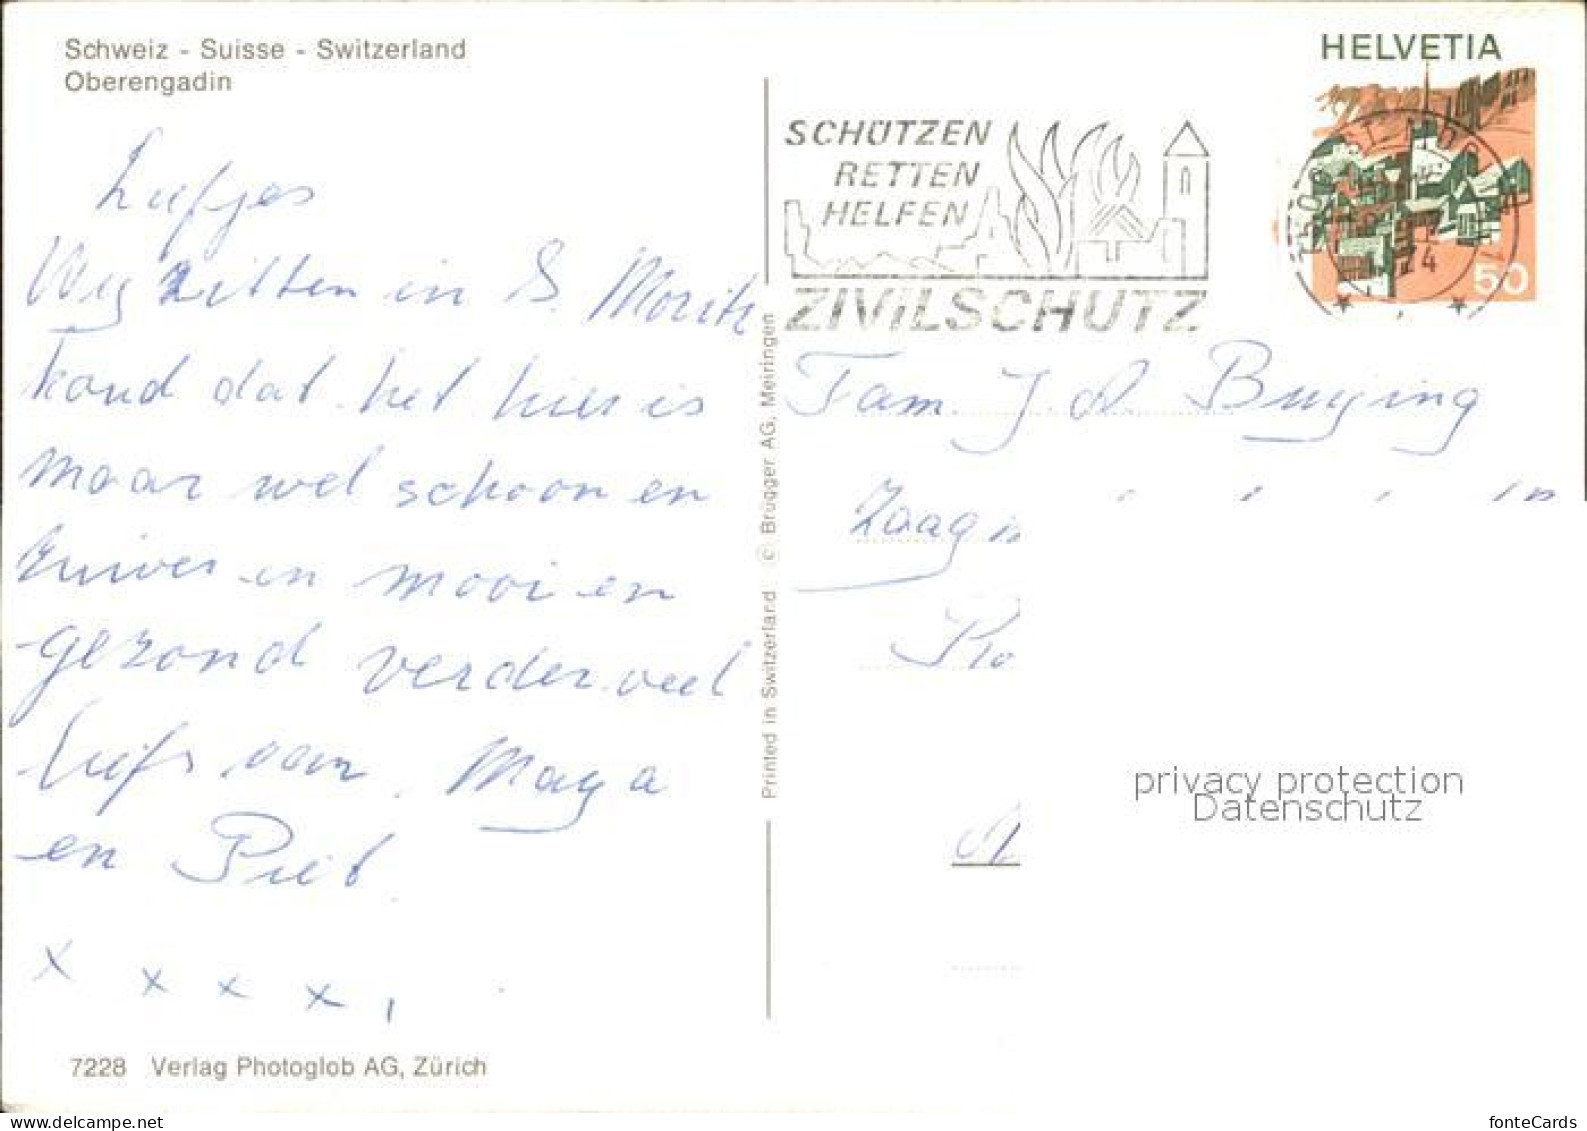 Schweiz - Suisse - Switzerland
Oberengadin
Liefjes
Wij zitten in S. Moritz
kand dat het hier is
maar wel schoon en
zuiver en mooi en
gezond verder veel
liefs van Maya
en Piet
x x x x
7228 Verlag Photoglob AG, Zürich
Printed in Switzerland © Brügger AG, Meiringen
SCHÜTZEN
RETTEN
HELFEN
ZIVILSCHUTZ
HELVETIA
50
Fam. J. d. Bruijing
Zaag
privacy protection
Datenschutz
fonteCards